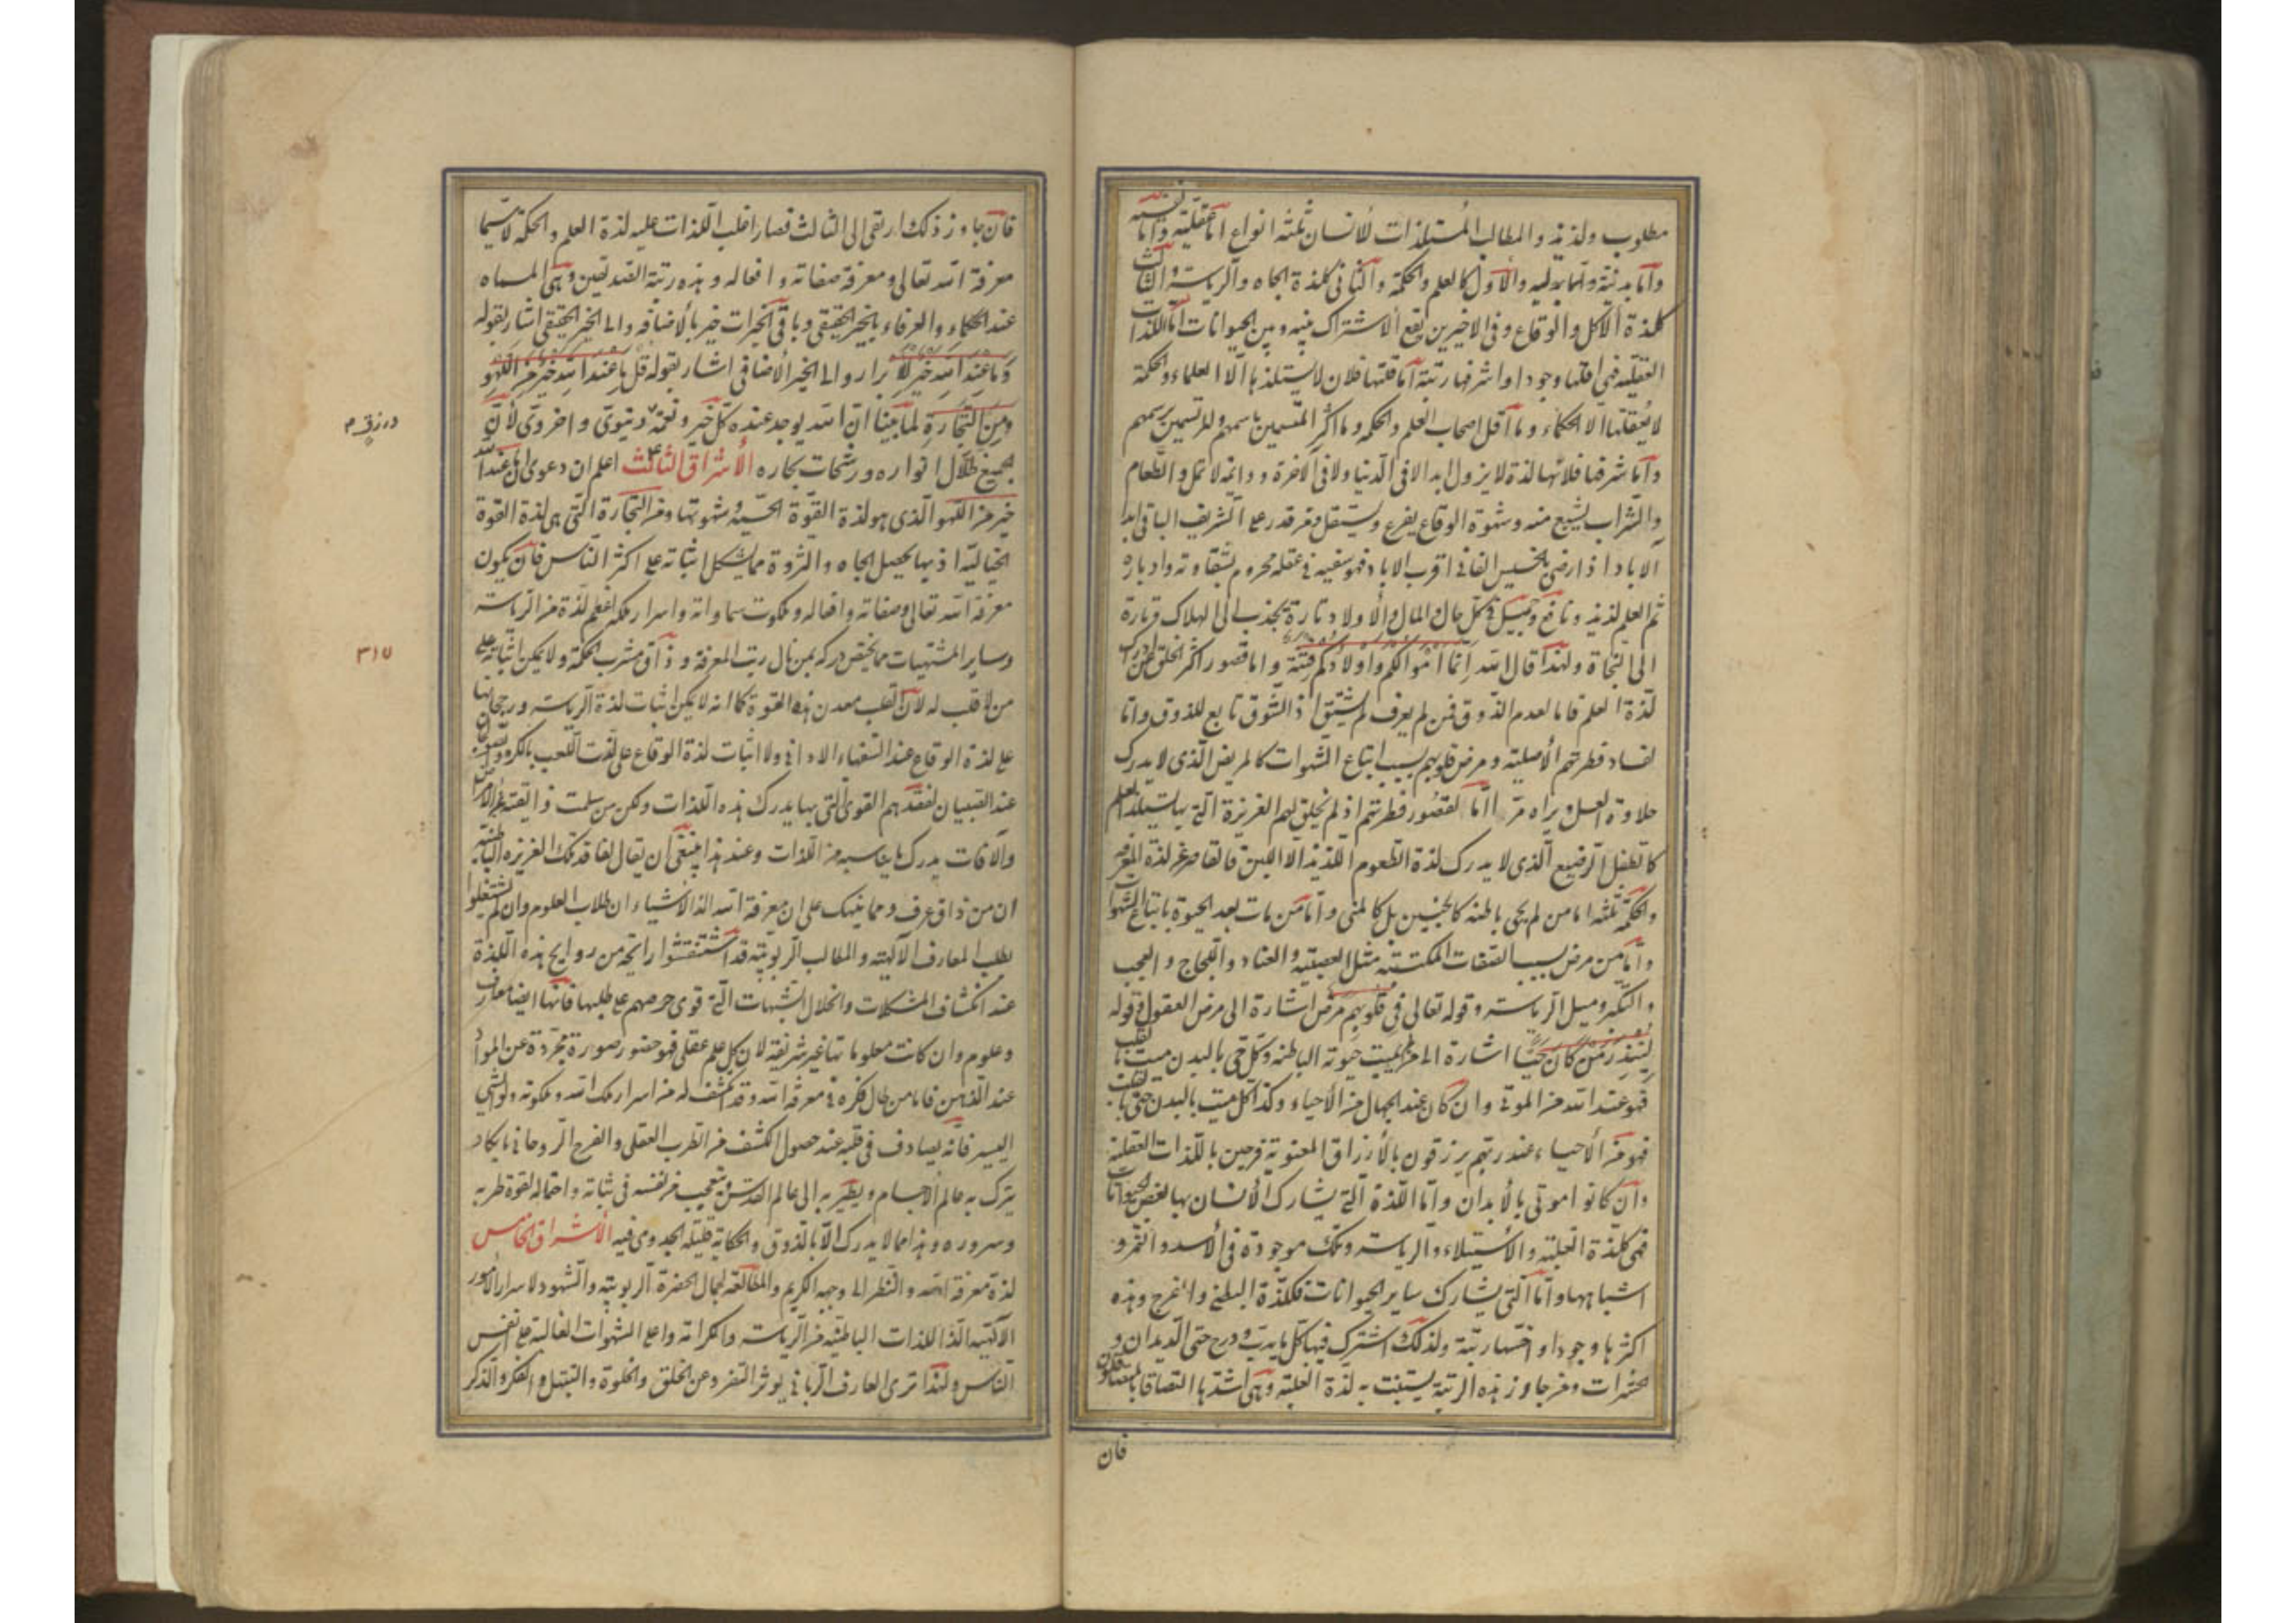 مطلوب ولذيذ والمطالب المستلذات للانسان ثلثة انواع اما عقلية واما نفسية
واما بدنية والاول كالعلم والحكمة والثانى كلذة الجاه والرياسة والثالث
كلذة الاكل والوقاع وفى الاخيرين يقع الاشتراك بينه وبين الحيوانات اما اللذات
العقلية فهى اقلها وجودا واشرفها رتبة اما قلتها فلان لا يستلذ بها الا العلماء والحكمة
لا يعقلها الا الحكماء وما اقل اصحاب العلم والحكمة وما اكثر المتسمين باسمهم والمرتسمين برسمهم
واما شرفها فلانها لذة لا يزول ابدا لا فى الدنيا ولا فى الاخرة ودائمة لا تمل والطعام
والشراب يشبع منه وشهوة الوقاع يفرغ ويستقل ومن قدر على الشريف الباقى ابد
الاباد اذا رضى بالخسيس الفانى اقرب الاباد فهو سفيه فى عقله محروم لشقاوته وادباره
ثم العلم لذيذ ونافع وجميل فى كل حال والمال والاولاد تارة يجذب الى الهلاك وتارة
الى النجاة ولهذا قال الله انما اموالكم واولادكم فتنة واما قصور اكثر الخلق عن ادراك
لذة العلم فاما لعدم الذوق فمن لم يعرف لم يشتق اذ الشوق تابع للذوق واما
لفساد فطرتهم الاصلية ومرض قلوبهم بسبب اتباع الشهوات كالمريض الذى لا يدرك
حلاوة العسل ويراه مرا واما لقصور فطرتهم اذ لم يخلق لهم الغريزة التى بها يستلذ العلم
كالطفل الرضيع الذى لا يدرك لذة الطعوم اللذيذ الا اللبن فالقاصر عن لذة المعرفة
والحكمة ثلثة اما من لم يحى باطنه كالجنين بل كالمنى واما من مات بعد الحيوة باتباع الشهوات
واما من مرض بسبب الصفات المكتسبة مثل العصبية والعناد واللجاج والعجب
والتكبر وميل الرياسة وقوله تعالى فى قلوبهم مرض اشارة الى مرض العقول وقوله
لينذر من كان حيا اشارة الى من لم يميت حيوته الباطنة وكل حى بالبدن ميت بالقلب
فهو عند الله من الموتى وان كان عند الجهال من الاحياء وكذا كل ميت بالبدن حى بالقلب
فهو من الاحياء عند ربهم يرزقون بالارزاق المعنوية فرحين باللذات العقلية
وان كانوا موتى بالابدان واما اللذة التى يشارك الانسان بها لبعض الحيوانات
فهى كلذة الغلبة والاستيلاء والرياسة وتلك موجودة فى الاسد والنمر و
اشباهها واما التى يشارك ساير الحيوانات فكلذة البطن والفرج وهذه
اكثرها وجودا واخسها رتبة ولذلك اشترك فيها كل ما يدب ودرج حتى الديدان و
الحشرات ومن جاوز هذه الرتبة يتشبث به لذة الغلبة وهى اشدها التصاقا بالمتعاقلين
فان
فان جاوز ذلك ارتقى الى الثالث فصار اغلب اللذات عليه لذة العلم والحكمة لا سيما
معرفة الله تعالى ومعرفة صفاته وافعاله وهذه رتبة الصديقين وهى المسماه
عند الحكماء والعرفاء بالخير الحقيقى وباقى الخيرات خير بالاضافة والى الخير الحقيقى اشار بقوله
وما عند الله خير للابرار والى الخير الاضافى اشار بقوله قل ما عند الله خير من اللهو
ومن التجارة لما بينا ان الله يوجد عنده كل خير ونعمة دنيوى واخروى لان
جميع ظلال انواره ورشحات بحاره الاشراق الثالث اعلم ان دعوى ان ما عند الله
خير من اللهو الذى هو لذة القوة الحسية وشهوتها ومن التجارة التى هى لذة القوة
الخيالية اذ بها يحصل الجاه والثروة مما يشكل اثباته على اكثر الناس فان يكون
معرفة الله تعالى وصفاته وافعاله وملكوت سماواته واسرار ملكه اعظم لذة من الرياسة
وساير المشتهيات مما يختص دركه بمن نال رتب المعرفة وذاق مشرب الحكمة ولا يمكن اثباته على
من لا قلب له لان القلب معدن هذه القوة كما انه لا يمكن اثبات لذة الرياسة ورجحانها
على لذة الوقاع عند السفهاء الادانى ولا اثبات لذة الوقاع على لذت اللعب بالكرة والصولجان
عند الصبيان لفقدهم القوى التى بها يدرك هذه اللذات ولكن من سلمت ذائقته عن الامراض
والافات يدرك ما يناسبه من اللذات وعند هذا ينبغى ان يقال لفاقد تلك الغريزة الباطنية
ان من ذاق عرف ومما ينبهك على ان معرفة الله الذ الاشياء ان طلاب العلوم وان لم يشتغلوا
بطلب المعارف الالهية والمطالب الربوبية قد استنشقوا رايحة من روايح هذه اللذة
عند انكشاف المشكلات وانحلال الشبهات التى قوى حرصهم على طلبها فانها ايضا معارف
وعلوم وان كانت معلوماتها غير شريفة لان كل علم عقلى فهو حضور صورة مجردة عن المواد
عند الذهن فاما من طال فكره فى معرفة الله وقد انكشف له من اسرار ملك الله وملكوته ولو الشى
اليسير فانه يصادف فى قلبه عند حصول الكشف من الطرب العقلى والفرح الروحانى ما يكاد
يترك به عالم الاجسام ويطير به الى عالم القدس ويتعجب من نفسه فى ثباته واحتماله لقوة طربه
وسروره وهذا مما لا يدرك الا بالذوق والحكاية قليلة الجدوى فيه الاشراق الخامس
لذة معرفة الله والنظر الى وجهه الكريم والمطالعة لجمال الحضرة الربوبية والشهود لاسرار الامور
الالهية الذ اللذات الباطنية من الرياسة والكرامة واعلى الشهوات الغالبة على انفس
الناس ولهذا ترى العارف الربانى يوثر التفرد عن الخلق والخلوة والتبتل والفكر والذكر
٣١٥